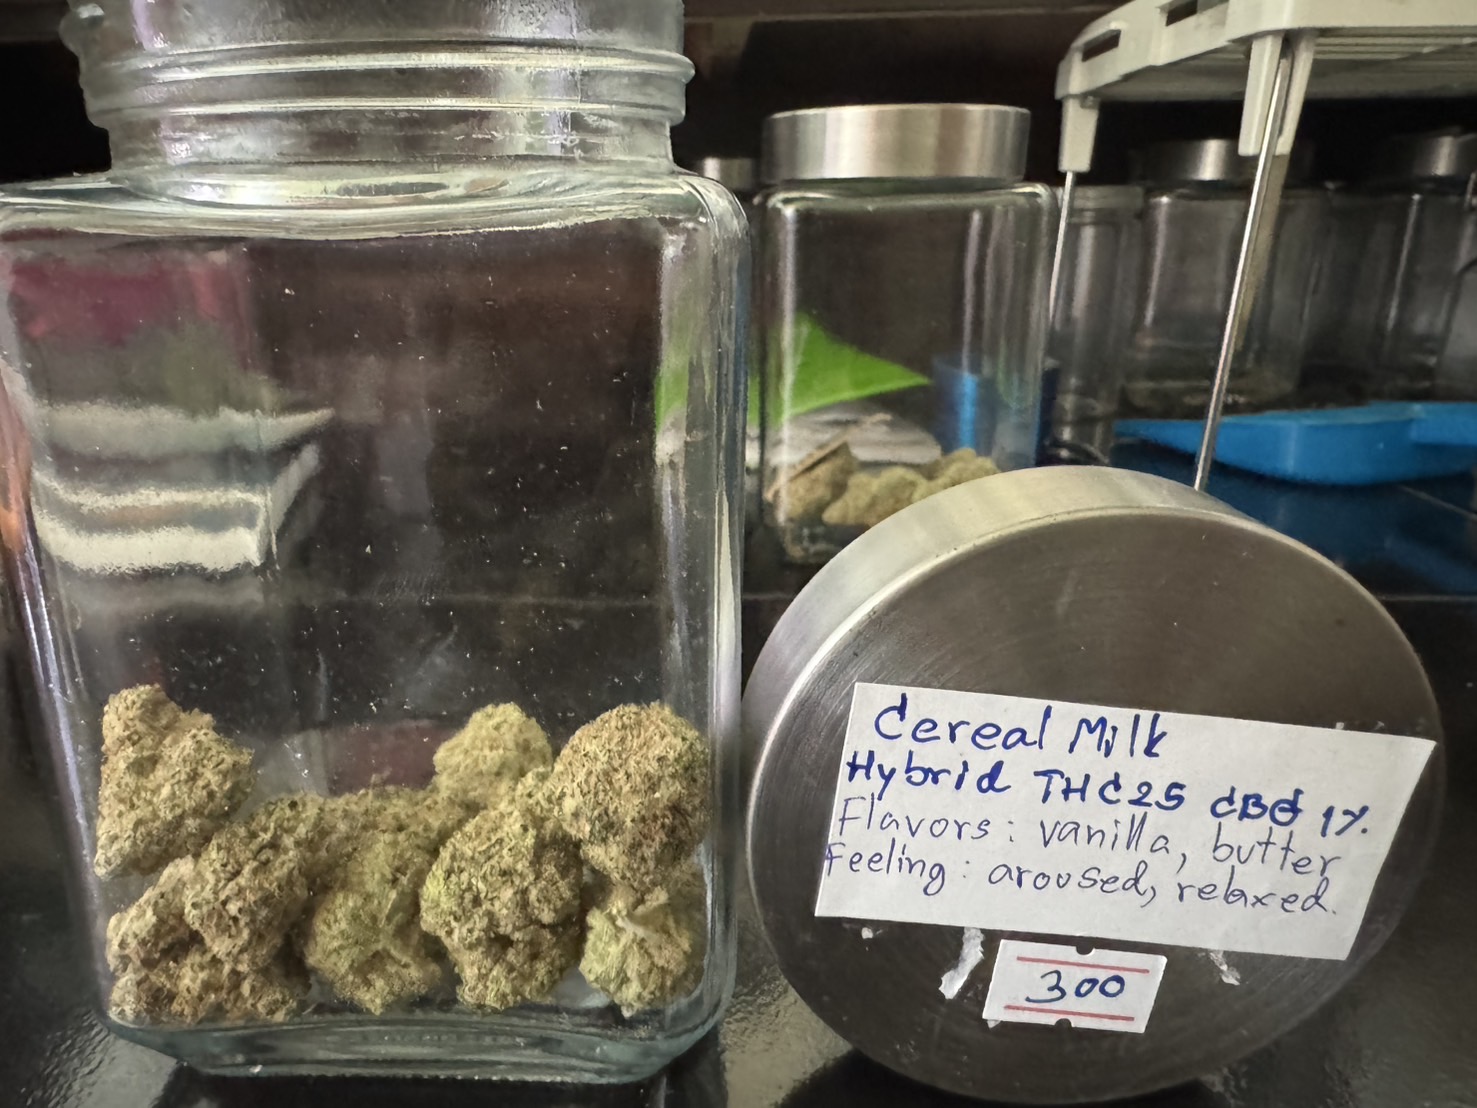 Cereal Milk
Hybrid THC25 CBG 1%.
Flavors: vanilla, butter
Feeling: aroused, relaxed.
300